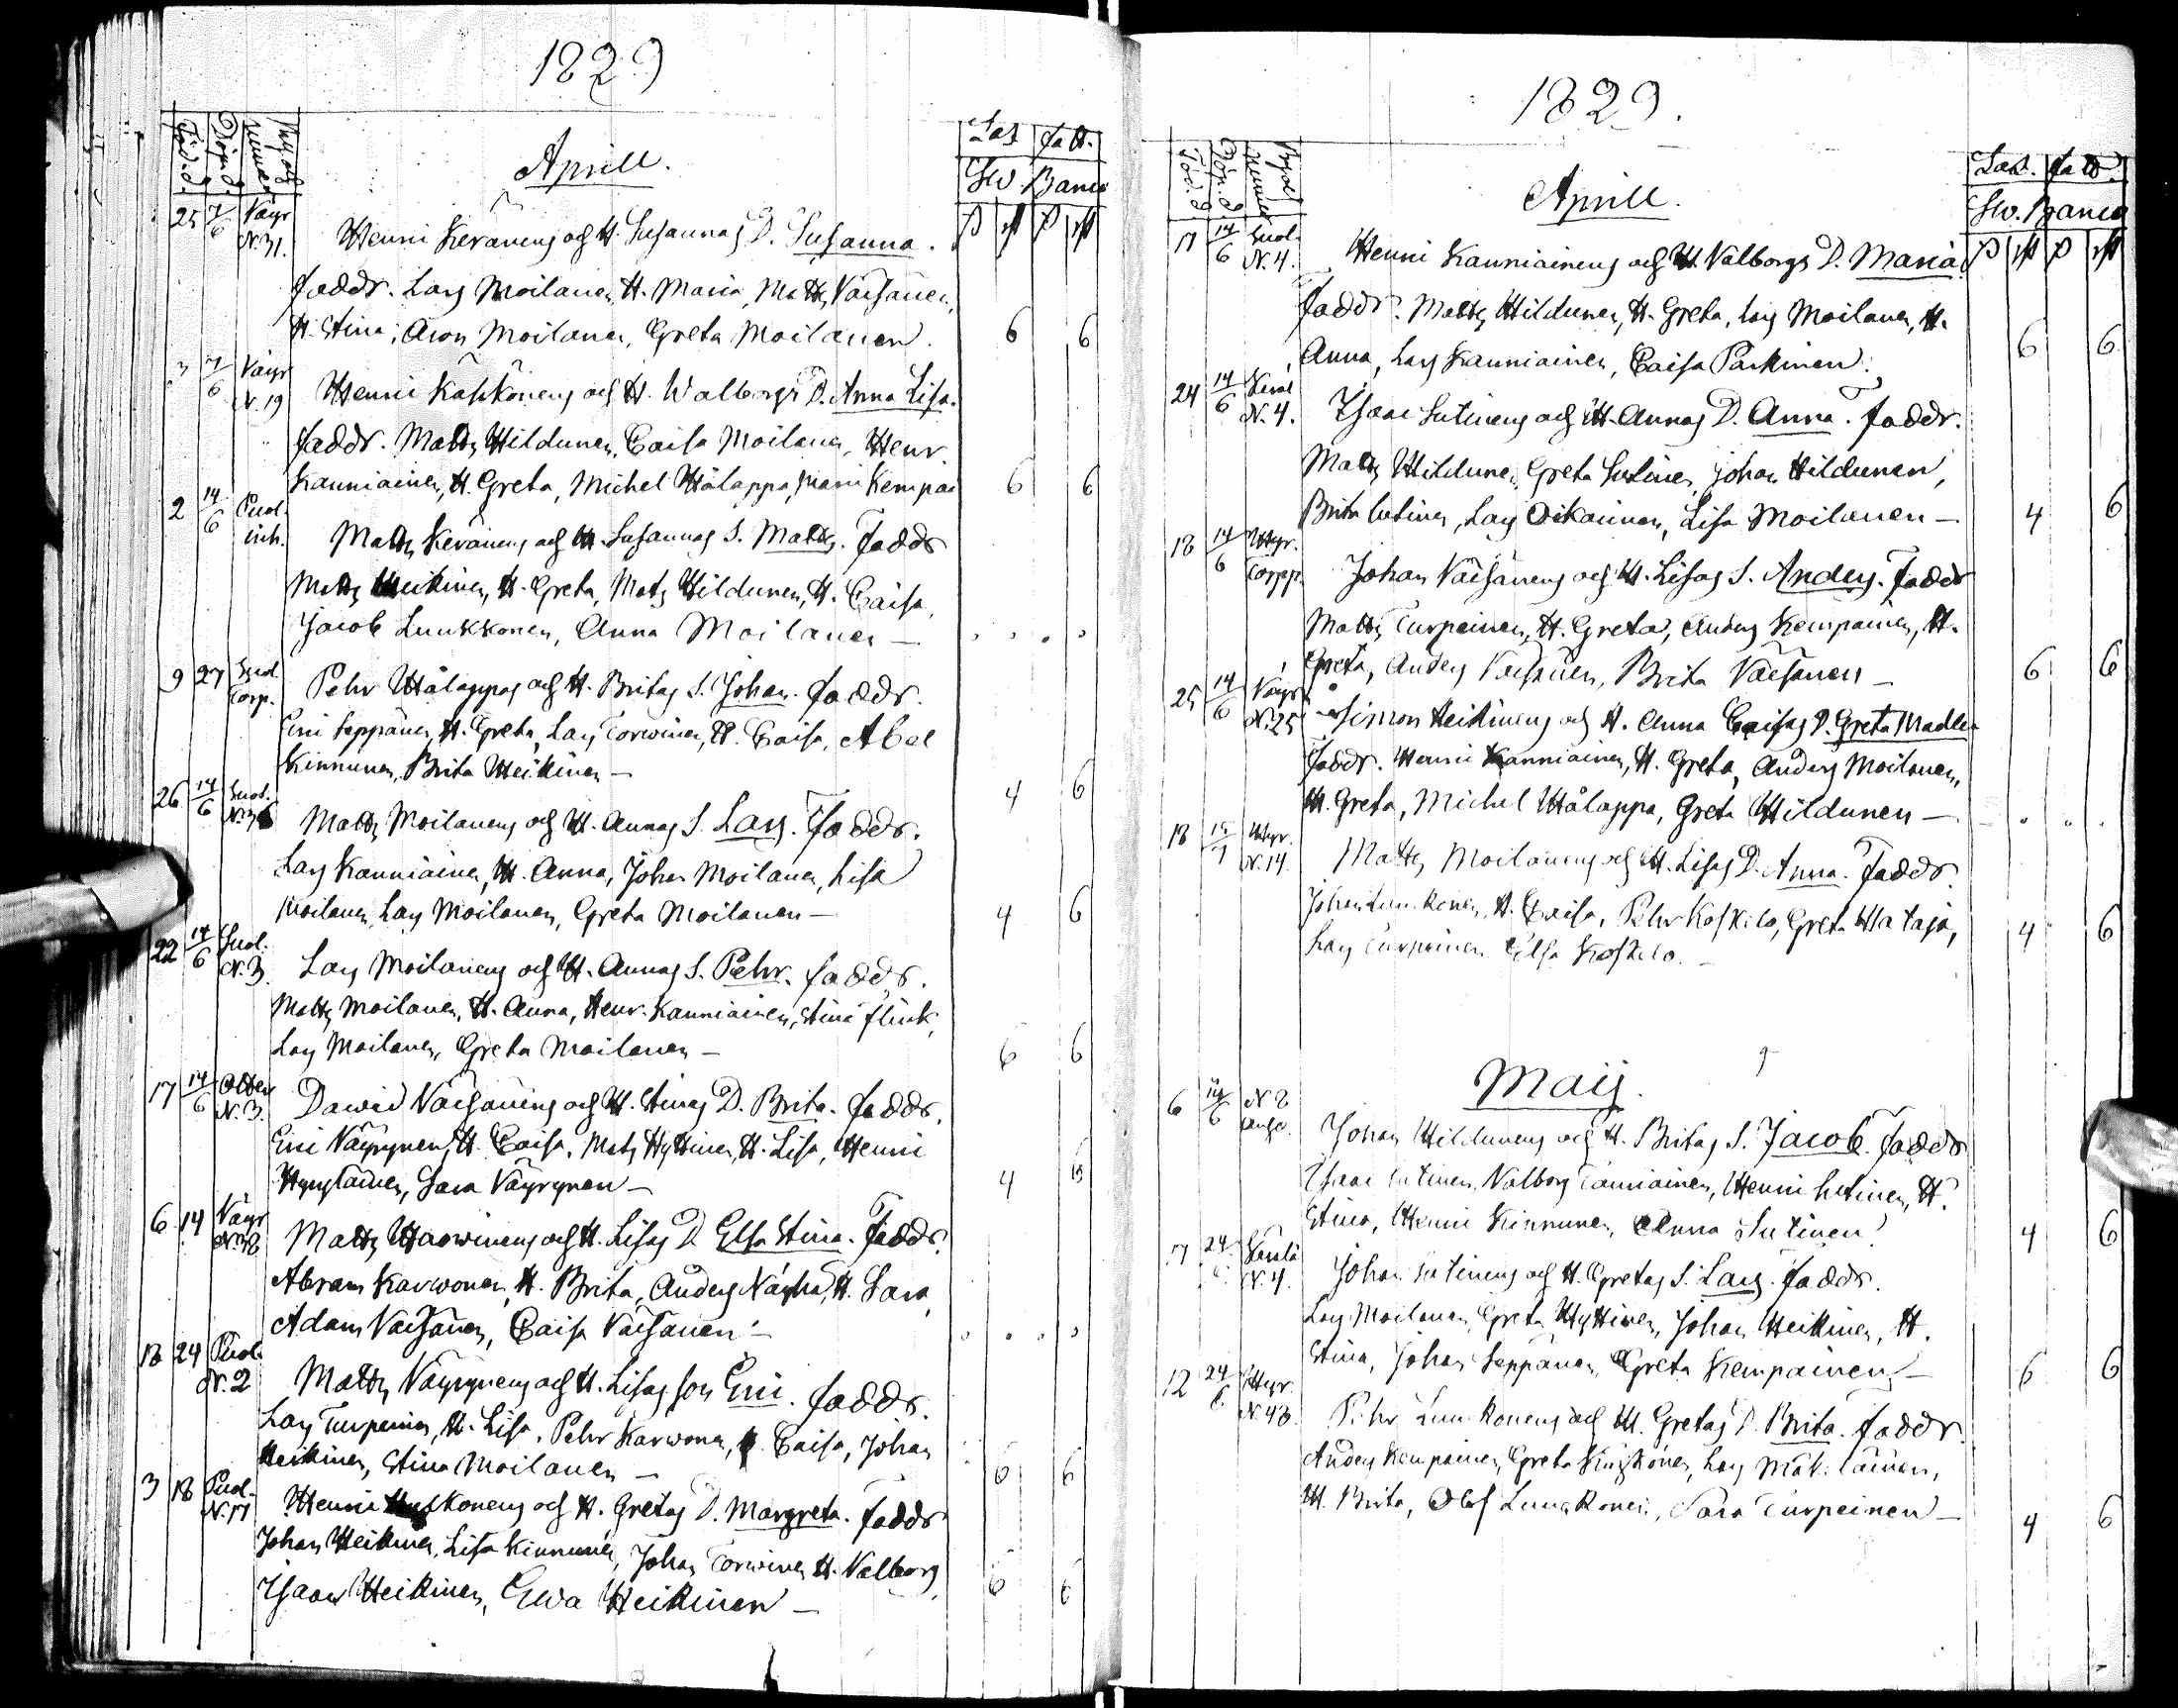 1829
Aprill.
Föd. d. Döp. d. By och Nummer
Las fatt.
Sw. Banco
25 7/6 Väyr N. 31. Henric Keränens och H. Susannas D. Susanna.
Faddr. Lars Moilanen, H. Maria, Matts Väisänen,
H. Stina, Aron Moilanen, Greta Moilanen. 6 6
3 7/6 Väyr N. 19 Henric Kähkönens och H. Walborgs D. Anna Lisa.
Faddr. Matts Hildunen, Caisa Moilanen, Henr.
Kanniainen, H. Greta, Michel Hålappa, Maria Kempai 6 6
2 14/6 Puol. inh. Matts Keränens och H. Susannas S. Matts. Faddr
Matts Heikinen, H. Greta, Mats Hildunen, H. Caisa,
Jacob Luukkonen, Anna Moilanen —
9 27 Suol. Torp. Pehr Hålappas och H. Britas S. Johan. Faddr.
Eric Seppänen, H. Greta, Lars Torwinen, H. Caisa, Abel
Kinnunen, Brita Heikinen — 4 6
26 14/6 Suol. N. 36 Matts Moilanens och H. Annas S. Lars. Faddr.
Lars Kanniainen, H. Anna, Johan Moilanen, Lisa
Moilanen, Lars Moilanen, Greta Moilanen — 4 6
22 14/6 Suol. N. 3. Lars Moilanens och H. Annas S. Pehr. Faddr.
Matts Moilanen, H. Anna, Henr. Kanniainen, Stina Flink,
Lars Moilanen, Greta Moilanen — 6 6
17 14/6 N. 3. Dawid Väisänens och H. Stinas D. Brita. Faddr.
Eric Väyrynen, H. Caisa, Mats Hyttinen, H. Lisa, Henric
Hyryläinen, Sara Väyrynen — 4 6
6 14 Väyr N. 38 Matts Haawinens och H. Lisas D. Elsa Stina. Faddr.
Abram Karwonen, H. Brita, Anders Näyhä, H. Sara,
Adam Väisänen, Caisa Väisänen —
18 24 Puol. N. 2 Matts Väyrynens och H. Lisas son Eric. Faddr.
Lars Turpeinen, H. Lisa, Pehr Karwonen, H. Caisa, Johan
Heikinen, Stina Moilanen — 6 6
3 18 Puol. N. 17 Henric och H. Gretas D. Margreta. Faddr
Johan Heikinen, Lisa Kinnunen, Johan Torwinen, H. Valborg,
Isaac Heikinen, Ewa Heikinen — 6 6
1829.
Aprill.
Föd. d. Döp. d. By och Nummer
Las. fatt.
Sw. Banco
17 14/6 Suol. N. 4. Henric Kanniainens och H. Valborgs D. Maria.
Faddr. Matts Hildunen, H. Greta, Lars Moilanen, H.
Anna, Lars Kanniainen, Caisa Parkinen. 6 6
24 14/6 N. 4. Isaac Sutinens och H. Annas D. Anna. Faddr.
Matts Hildunen, Greta Sutinen, Johan Hildunen,
Brita Sutinen, Lars Oikarinen, Lisa Moilanen — 4 6
18 14/6 Hyr. Torpp. Johan Väisänens och H. Lisas S. Anders. Faddr
Matts Turpeinen, H. Greta, Anders Kempainen, H.
Greta, Anders Väisänen, Brita Väisänen — 6 6
25 14/6 Väyr N. 25 Simon Heikinens och H. Anna Caisas D. Greta Madle
Faddr. Henric Kanniainen, H. Greta, Anders Moilanen,
H. Greta, Michel Hålappa, Greta Hildunen —
18 15/7 Hyr. N. 14. Matts Moilanens och H. Lisas D. Anna. Faddr.
Johan Luukonen, H. Caisa, Pehr Koskelo, Greta Hataja,
Lars Turpeinen, Elsa Koskelo. — 4 6
Maij.
6 14/6 N. 8 Johan Hildunens och H. Britas S. Jacob. Faddr
Isaac Sutinen, Valborg Tanniainen, Henric Sutinen, H.
Stina, Henric Kinnunen, Anna Sutinen. 4 6
17 24 N. 4. Johan Sutinens och H. Gretas S. Lars. Faddr.
Lars Moilanen, Greta Hyttinen, Johan Heikinen, H.
Stina, Johan Seppänen, Greta Kempainen — 6 6
12 24/6 Hyr. N. 48. Pehr Luukonens och H. Gretas D. Brita. Faddr.
Anders Kempainen, Greta, Lars Mäkiläinen,
H. Brita, Olof Luukkonen, Sara Turpeinen — 4 6